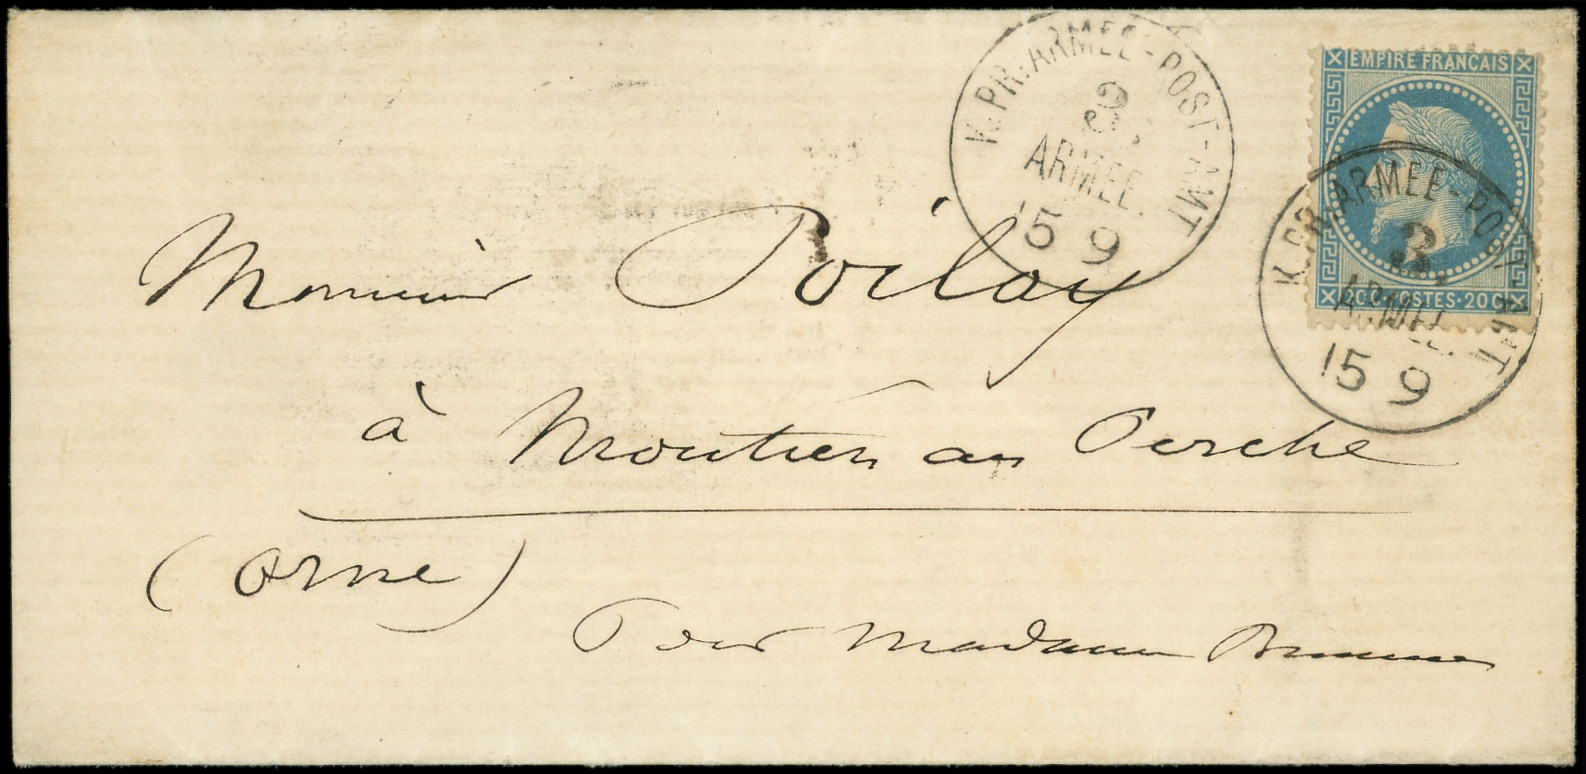 K.PR.ARMEE-POST-AMT
3.
ARMEE.
15 9
EMPIRE FRANCAIS
POSTES·20C
K.PR.ARMEE-POST-AMT
3.
ARMEE.
15 9
Monsieur Poiloy
à Moutiers au Perche
(Orne)
Pour Madame